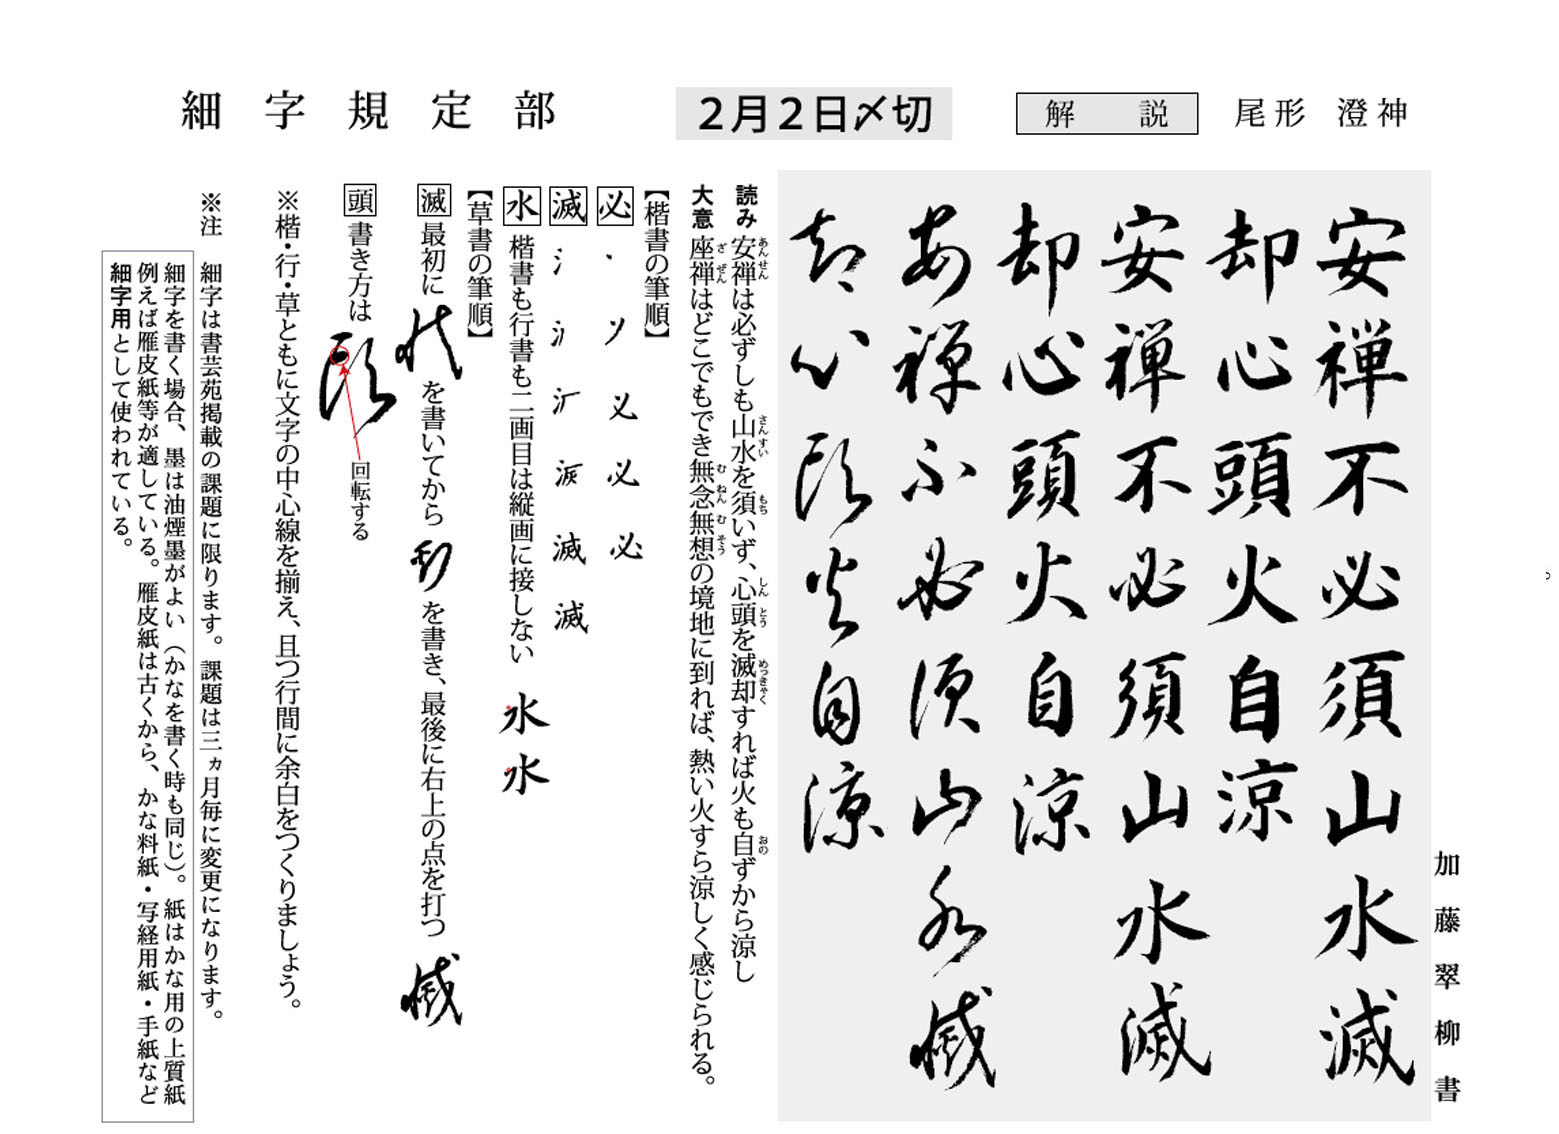 細字規定部
2月2日〆切
解説
尾形 澄神
加藤翠柳書
安禅不必須山水滅
却心頭火自涼
安禅不必須山水滅
却心頭火自涼
安禅不必須山水滅
却心頭火自涼
読み 安禅は必ずしも山水を須いず、心頭を滅却すれば火も自ずから涼し
あんぜん さんすい もち しんとう めっきゃく おの
大意 座禅はどこでもでき無念無想の境地に到れば、熱い火すら涼しく感じられる。
ざぜん むねんむそう
【楷書の筆順】
必
滅
水 楷書も行書も二画目は縦画に接しない 水 水
【草書の筆順】
滅 最初に を書いてから を書き、最後に右上の点を打つ 滅
頭 書き方は 頭 回転する
※楷・行・草ともに文字の中心線を揃え、且つ行間に余白をつくりましょう。
※注 細字は書芸苑掲載の課題に限ります。課題は三ヵ月毎に変更になります。
細字を書く場合、墨は油煙墨がよい（かなを書く時も同じ）。紙はかな用の上質紙
例えば雁皮紙等が適している。雁皮紙は古くから、かな料紙・写経用紙・手紙など
細字用として使われている。